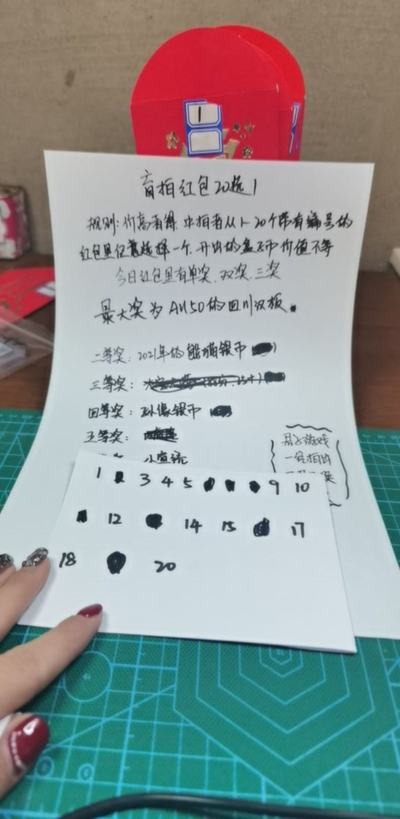 1
盲拍红包20选1
规则:价高者得 中拍者从1-20个带有编号的
红包里任意选择一个,开出的盒子币价值不等
今日红包里有单奖、双奖、三奖
最大奖为AU50的四川双板.
二等奖:2021年的熊猫银币
三等奖:
四等奖:孙像银币
五等奖:
小宣统
易上游戏
一经拍出
1 3 4 5 9 10
12 14 15 17
18 20